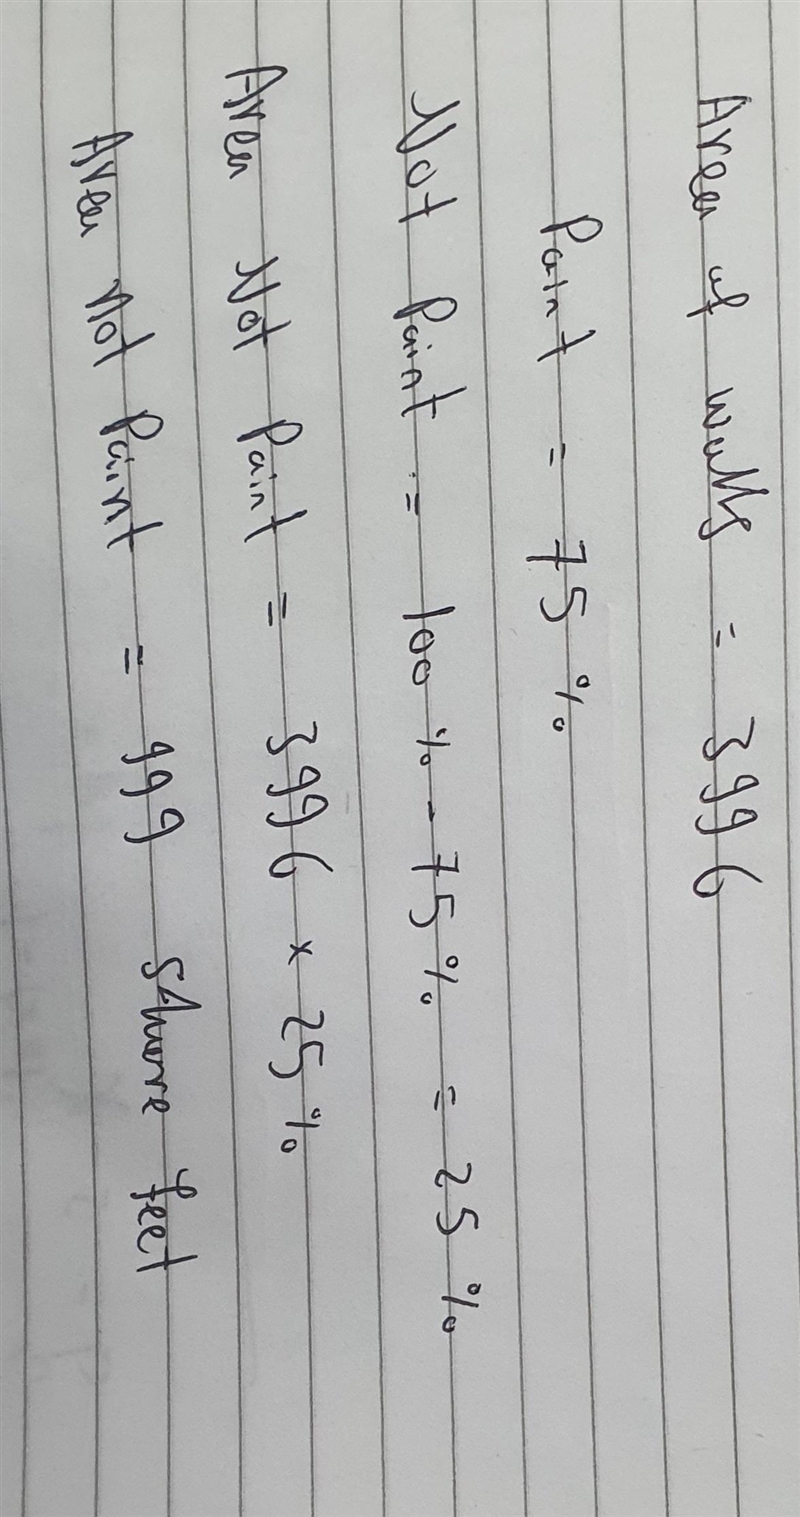 Area of walls = 3996
Paint = 75%
Not Paint = 100% - 75% = 25%
Area Not Paint = 3996 × 25%
Area Not Paint = 999 Square feet